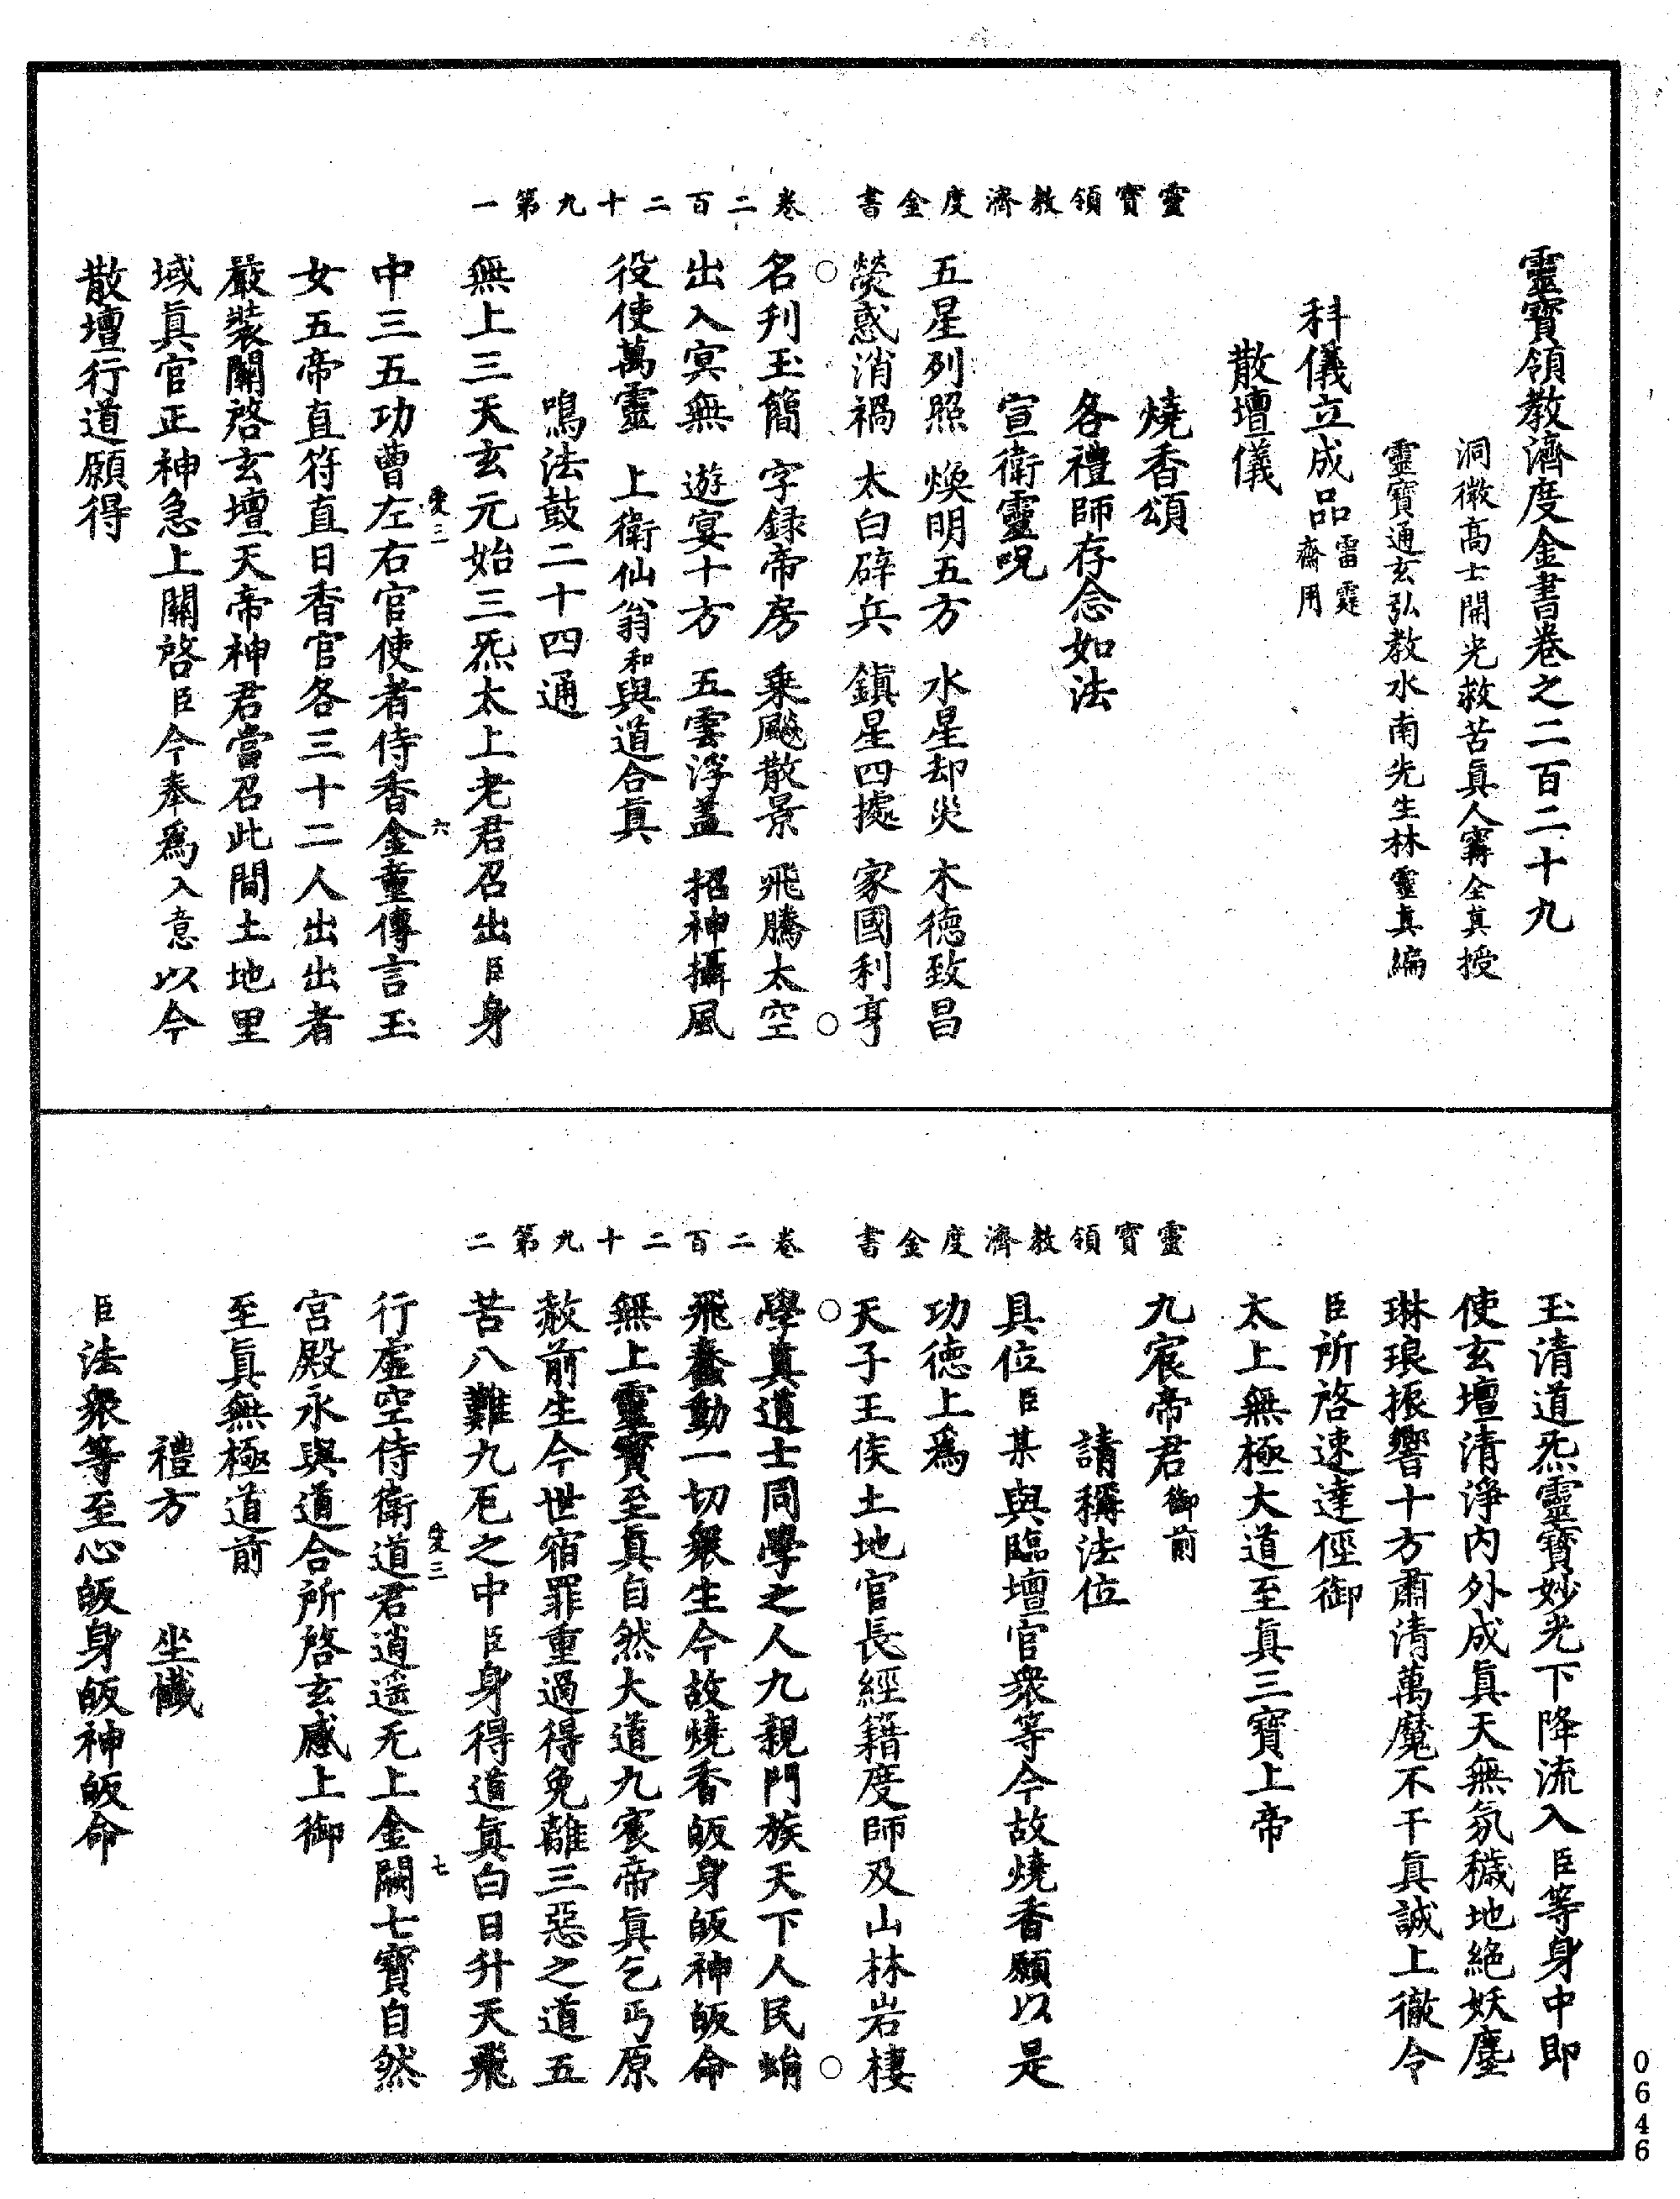 靈寶領教濟度金書卷之二百二十九
洞微高士開光救苦真人甯全真授
靈寶通玄弘教水南先生林靈真編
科儀立成品雷霆齋用
散壇儀
燒香頌
各禮師存念如法
宣衛靈呪
五星列照　煥明五方　水星却災　木德致昌
熒惑消禍　太白辟兵　鎮星四據　家國利亨
靈寶領教濟度金書　卷二百二十九第一
名刋玉簡　字録帝房　乘飈散景　飛騰太空
出入冥無　遊宴十方　五雲浮蓋　招神攝風
役使萬靈　上衛仙翁和與道合真
鳴法鼓二十四通
無上三天玄元始三炁太上老君召出臣身
中三五功曹左右官使者侍香金童傳言玉
受三　六
女五帝直符直日香官各三十二人出出者
嚴裝關啓玄壇天帝神君當召此間土地里
域真官正神急上關啓臣今奉爲入意以今
散壇行道願得
玉清道炁靈寶妙光下降流入臣等身中即
使玄壇清淨内外成真天無氛穢地絕妖塵
琳琅振響十方肅清萬魔不干真誠上徹令
臣所啓速達徑御
太上無極大道至真三寶上帝
九宸帝君御前
請稱法位
具位臣某與臨壇官衆等今故燒香願以是
功德上爲
天子王侯土地官長經籍度師及山林岩棲
靈寶領教濟度金書　卷二百二十九第二
學真道士同學之人九親門族天下人民蜎
飛蠢動一切衆生今故燒香皈身皈神皈命
無上靈寶至真自然大道九宸帝真乞丐原
赦前生今世宿罪重過得免離三惡之道五
苦八難九厄之中臣身得道真白日升天飛
行虛空侍衛道君逍遥无上金闕七寶自然
受三　七
宫殿永與道合所啓玄感上御
至真無極道前
禮方　坐懺
臣法衆等至心皈身皈神皈命
0646